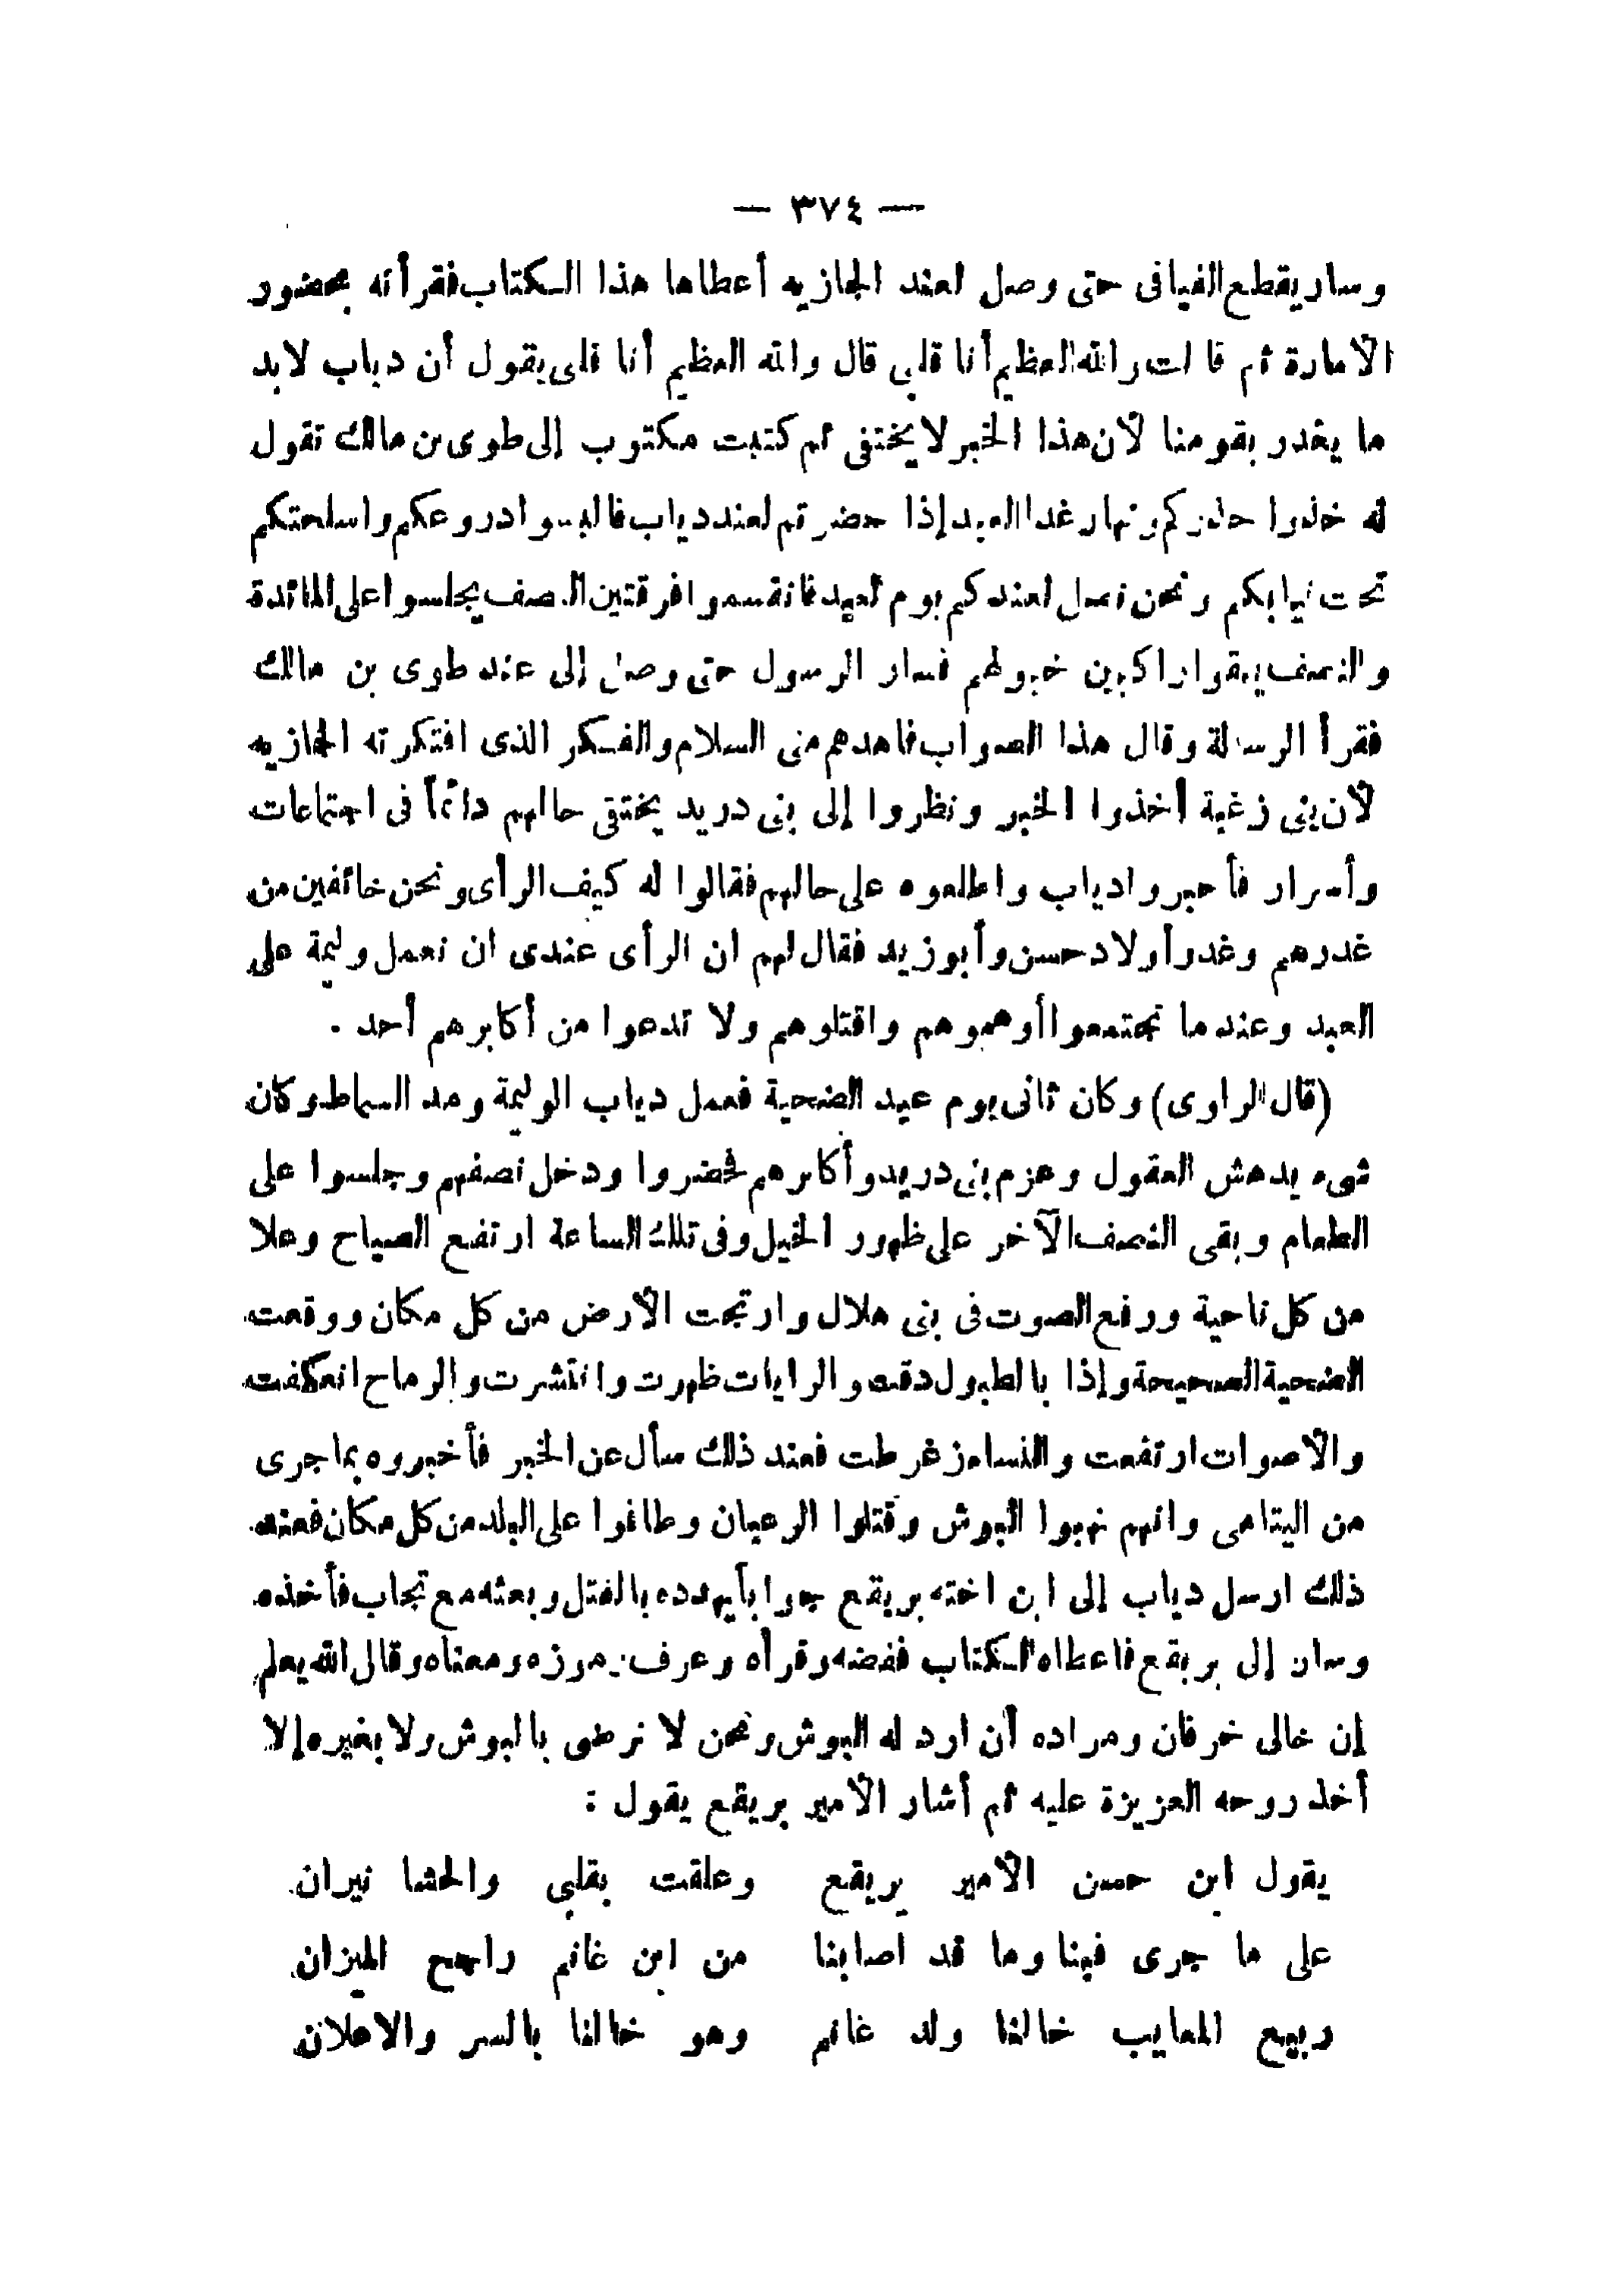 — ٣٧٤ —
وسار يقطع الفيافى حتى وصل لعند الجازيه أعطاها هذا الكتاب فقرأته بحضور
الأمارة ثم قالت والله العظيم أنا قلبى قال والله العظيم أنا قلبى يقول أن دياب لابد
ما يغدر بقومنا لأن هذا الخبر لا يختفى ثم كتبت مكتوب إلى طوى بن مالك تقول
له خذوا حذركم ونهار غدا العيد إذا حضرتم لعند دياب فالبسوا دروعكم واسلحتكم
تحت ثيابكم ونحن نصل لعندكم يوم العيد فانقسموا فرقتين النصف يجلسوا على المائدة
والنصف يبقوا راكبين خيولهم فسار الرسول حتى وصل إلى عند طوى بن مالك
فقرأ الرسالة وقال هذا الصواب فاهدهم منى السلام والفكر الذى افتكرته الجازيه
لأن بنى زغبة أخذوا الخبر ونظروا إلى بنى دريد يختفى حالهم دائماً فى اجتماعات
وأسرار فأخبروا دياب واطلعوه على حالهم فقالوا له كيف الرأى ونحن خائفين من
غدرهم وغدر أولاد حسن وأبو زيد فقال لهم ان الرأى عندى ان نعمل وليمة على
العيد وعندما تجتمعوا أوهموهم واقتلوهم ولا تدعوا من أكابرهم أحد .
(قال الراوى) وكان ثانى يوم عيد الضحية فعمل دياب الوليمة ومد السماط وكان
شىء يدهش العقول وعزم بنى دريد وأكابرهم فحضروا ودخل نصفهم وجلسوا على
الطعام وبقى النصف الآخر على ظهور الخيل وفى تلك الساعة ارتفع الصياح وعلا
من كل ناحية ورفع الصوت فى بنى هلال وارتجت الأرض من كل مكان ووقعت
الضحية الصحيحة وإذا بالطبول دقت والرايات ظهرت وانتشرت والرماح انعكفت
والأصوات ارتفعت والنساء زغرطت فعند ذلك سأل عن الخبر فأخبروه بما جرى
من اليتامى وانهم نهبوا البوش وقتلوا الرعيان وطافوا على البلد من كل مكان فعند
ذلك ارسل دياب إلى ابن اخته بريقع جوابا يهدده بالقتل وبعثه مع نجاب فأخذه
وسار إلى بريقع فاعطاه الكتاب ففضه وقرأه وعرف رموزه ومعناه وقال الله يعلم
إن خالى خرفان ومراده أن ارد له البوش ونحن لا نرضى بالبوش ولا بغيره إلا
أخذ روحه العزيزة عليه ثم أشار الأمير بريقع يقول :
يقول ابن حسن الأمير بريقع وعلقت بقلبي والحشا نيران
على ما جرى فينا وما قد اصابنا من ابن غانم راجح الميزان
ربيع المعايب خالنا ولد غانم وهو خالنا بالسر والاعلان